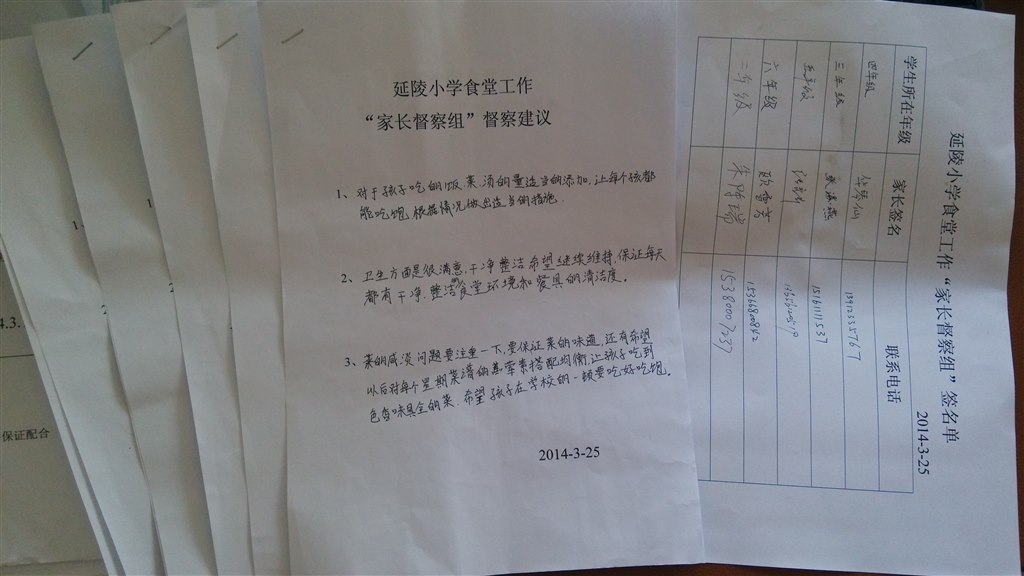 延陵小学食堂工作
“家长督察组”督察建议
1、对于孩子吃的饭、菜、汤的量适当的添加，让每个孩都
能吃饱，根据情况做出适当的措施.
2、卫生方面是很满意，干净整洁希望继续维持，保证每天
都有干净整洁的食堂环境和餐具的清洁度。
3、菜的咸淡问题要注重一下，要保证菜的味道，还有希望
以后对每个星期菜谱的营养素搭配均衡，让孩子吃到
色香味具全的菜，希望孩子在学校的一顿要吃好吃饱.
2014-3-25
延陵小学食堂工作“家长督察组”签名单
2014-3-25
学生所在年级 家长签名 联系电话
四年级
三年级
五年级
六年级
二年级 15380007337
4.3.
保证配合